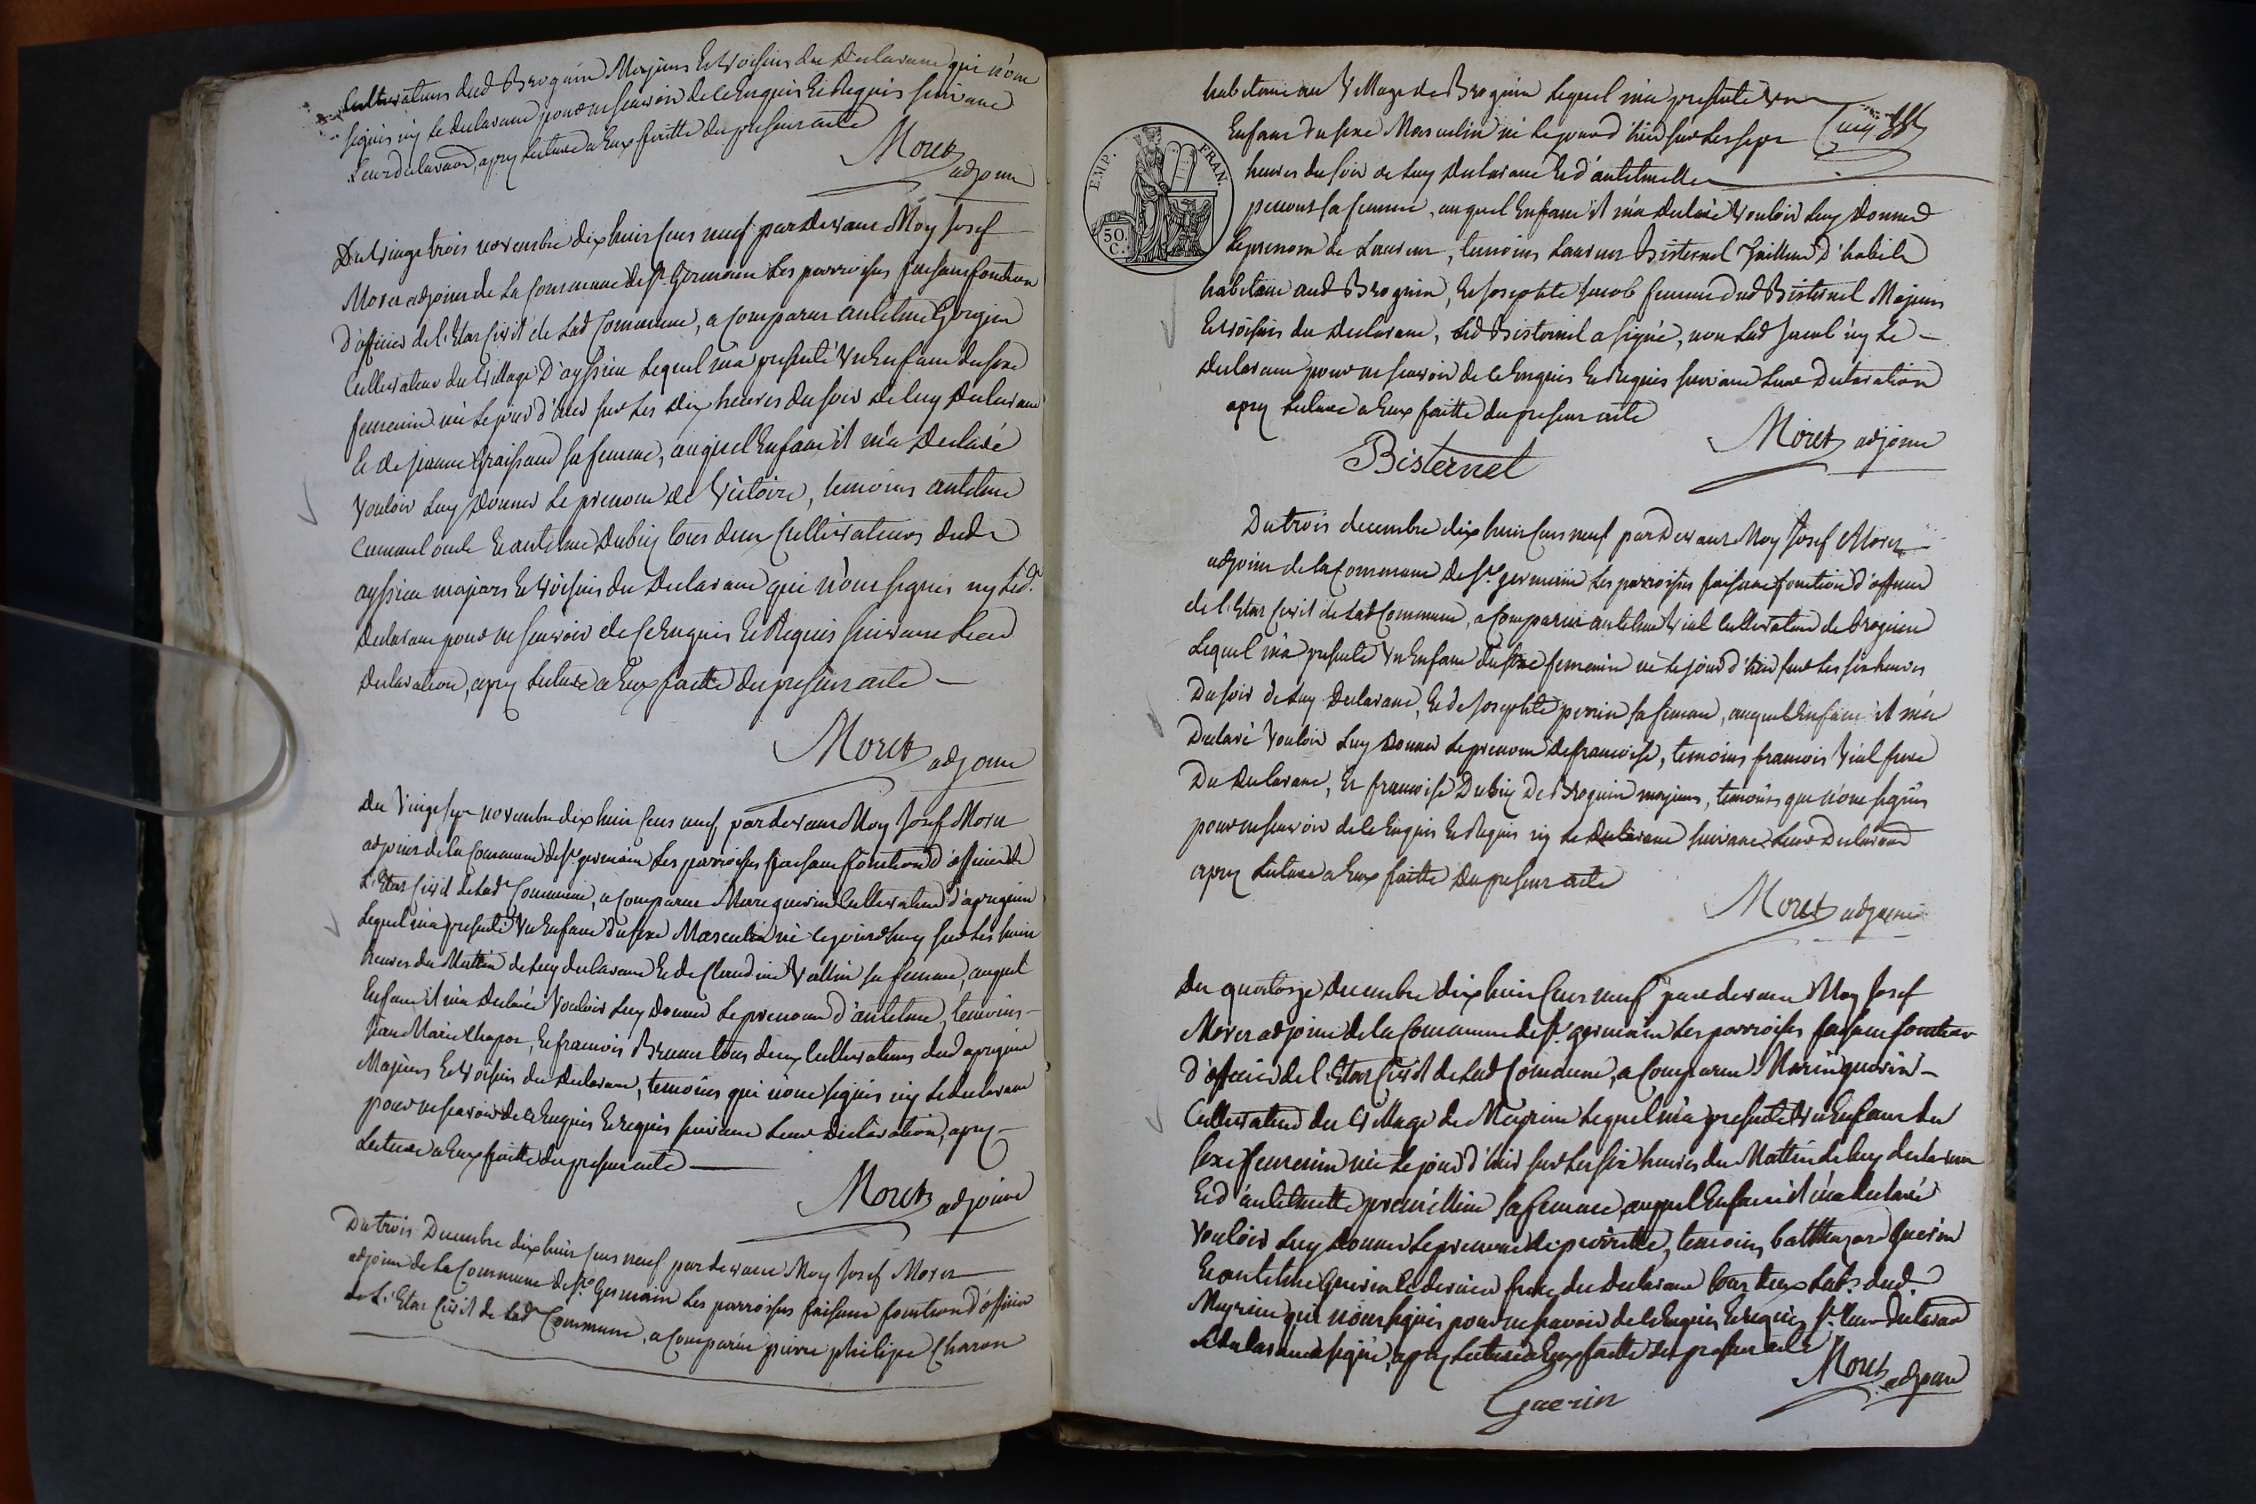 Cultivateurs dud Brognin Majeurs Et Voisins du Declarant qui n'ont
signés ny le declarant pour ne scavoir de ce Enquis Et Requis suivant
Leur declaraon, apres Lecture a Eux faitte du present acte
Moret adjoint
Du Vingt trois novembre dix huit cent neuf par Devant Moy Josef
Moret adjoint de la Commune de St. Germain Les parroisses faisant fonction
d'officier de l'Etat Civil de Lad Commune, a comparu antelme Gorgin
Cultivateur du Village D'ayssieu Lequel m'a presenté Un Enfant du sexe
femenin né Le jour d'hier sur Les Dix heures du soir De luy Declarant
Et de jeanne fraissard sa femme, auquel Enfant il m'a Declaré
Vouloir Luy Donner Le prenom de Victoire, temoins antelme
Et antelme Dubuy tous deux Cultivateurs dud
ayssieu majeurs Et Voisins du Declarant qui n'ont signés ny Led.
Declarant pour ne scavoir de Ce Enquis Et Requis suivant Leur
Declaration, apres Lecture a Eux faitte du present acte
Moret adjoint
Du Vingt sept novembre dix huit cent neuf, par devant Moy Josef Moret
adjoint de la Commune de St germain Les parroisses faisant fonction d'officier de
L'Etat Civil de Lad Commune, a comparu Marc guerin Cultivateur d'apregnin
Lequel m'a presenté Un Enfant du sexe Masculin né cejourdhuy sur Les huit
heures du Mattin de Luy declarant Et de Claudine Vallin sa femme, auquel
Enfant il m'a Declaré Vouloir Luy Donner Le prenom d'antelme, temoins
Jean Marie Chapot, Et francois Brunet tous deux Cultivateurs dud apregnin
Majeurs Et Voisins du Declarant, temoins qui n'ont signés ny Le declarant
pour ne scavoir de ce Enquis Et requis suivant Leur Declaration, apres
Lecture a Eux faitte du present acte
Moret adjoint
Du trois Decembre dix huit cent neuf par devant Moy Josef Moret
adjoint de La Commune de St. Germain Les parroisses faisant fonction d'officier
de L'Etat Civil de Lad Commune, a Comparu pierre philipe Charon
habitant au Village de Brognin Lequel m'a presenté Un
Enfant du sexe Masculin né Le jour d'hier sur Les sept
heures du soir de Luy Declarant Et d'antelmette
EMP. FRAN.
50 C.
sa femme, auquel Enfant il m'a Declaré Vouloir Luy Donner
Le prenom de Laurent, temoins Laurent Bisternel Tailleur d'habits
habitant aud Brognin, Et Josephte Jacob femme dud Bisternel Majeurs
Et Voisins du Declarant, Led Bisternel a signé, non Lad Jacob ny Le
Declarant pour ne scavoir de ce Enquis Et Requis suivant Leur Declaration
apres Lecture a Eux faitte du present acte
Moret adjoint
Bisternel
Du trois decembre dix huit cent neuf par Devant Moy Josef Moret
adjoint de la Commune de St germain Les parroisses faisant fonction d'officier
de l'Etat Civil de Lad Commune, a comparu antelme Vial Cultivateur de brognin
Lequel m'a presenté Un Enfant du sexe femenin né Le jour d'hier sur Les six heures
Du soir de Luy Declarant, Et de Josephte perrin sa femme, auquel Enfant il m'a
Declaré Vouloir Luy Donner Le prenom de francoise, temoins francois Vial frere
Du Declarant, Et francoise Dubuy De Brognin majeurs, temoins qui n'ont signés
pour ne scavoir de ce Enquis Et Requis ny Le Declarant suivant Leur Declaraon
apres Lecture a Eux faitte Du present acte
Moret adjoint
Du quatorze Decembre dix huit cent neuf par devant Moy Josef
Moret adjoint de la Commune de St. germain Les parroisses faisant fonction
d'officier de l'Etat Civil de Lad Commune, a Comparu Marin guerin
Cultivateur du Village de Meyrieu Lequel m'a presenté Un Enfant du
sexe femenin né Le jour d'hier sur Les six heures du Mattin de Luy declarant
Et d'antelmette premillieu sa femme, auquel Enfant il m'a declaré
Vouloir Luy Donner Le prenom de pierrette, temoins batthazard Guerin
Et antelme Guerin Le dernier frere du Declarant tous deux hab. dud
Meyrieu qui n'ont signés pour ne scavoir de ce Enquis Et requis St. Leur Declaraon
Le declarant a signé, apres Lecture a Eux faitte du present acte
Moret adjoint
Guerin